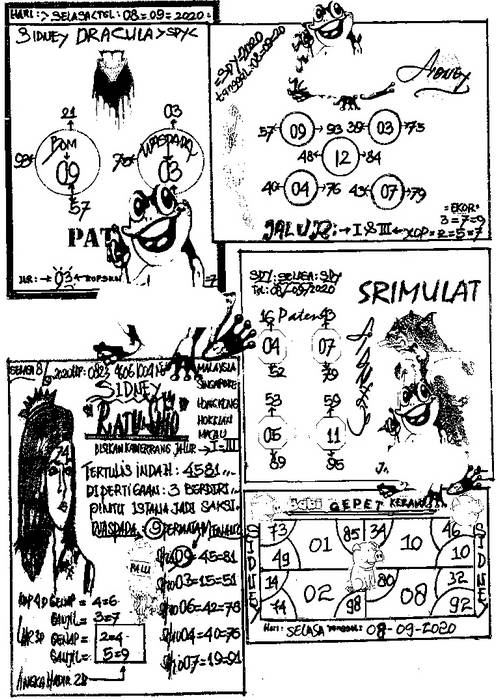 HARI : SELASA TGL : 08=09=2020=
SIDNEY DRACULA SDY
21
BOM
98
09
57
03
WASPADA
03
PAT
03
=SDY=2020
tanggal:08=09=20
SIDNEY
57 09 93 39 03 73
48 12 84
40 04 76 43 07 79
=EKOR=
3=7=9
JALUR: I & III KOP=2=5=7
SDY: SELASA: SDY
TGL: 08/09/2020
SRIMULAT
16 Paten 43
04 07
52 79
53 59
05 11
89 95
SIDNEY
RATU
BISIKAN KAMERRANG JALUR I=III
MALAYSIA
SINGAPORE
HONGKONG
HOKKIAN
MACAU
TERTULIS INDAH : 4581
DI PERTIGAAN : 3 BERDIRI
PINTU ISTANA JADI SAKSI
WASPADA 9 PERMATA
74
PALU
09=45=81
03=15=51
06=42=78
04=40=76
07=19=91
KOP 4D GENAP = 4=6
GANJIL = 3=7
GENAP = 2=4
GANJIL = 5=9
ANGKA HADIR 2D
BABI GEPET KERAMAT
SIDNEY
73 01 85 34 10 46
49 10
14 02 80 08 32
74 98 92
SIDNEY
Hari: SELASA TANGGAL: 08-09-2020